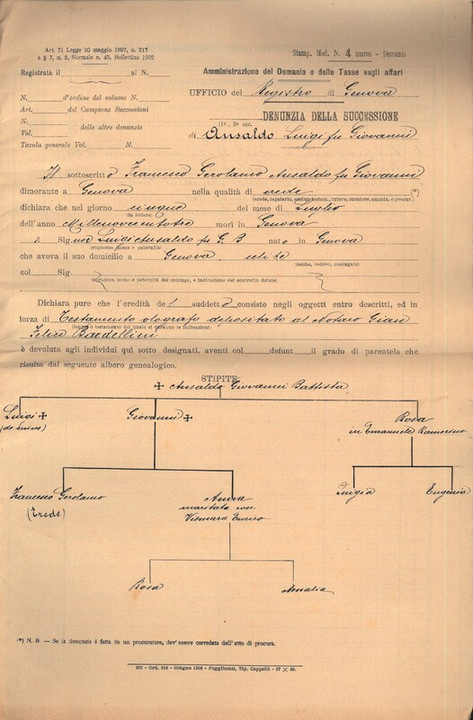 Art. 71 Legge 20 maggio 1897, n. 217
e § 7, n. 2, Normale n. 45, Bollettino 1902
Stamp. Mod. N. 4 nuovo - Demanio
Registrata il al N.
Amministrazione del Demanio e delle Tasse sugli affari
UFFICIO del Registro di Genova
N. d'ordine del volume N.
Art. del Campione Successioni
DENUNZIA DELLA SUCCESSIONE
N.
Vol. delle altre denunzie
di Ansaldo Luigi fu Giovanni
Tavola generale Vol. N.
Il sottoscritto Francesco Gerolamo Ansaldo fu Giovanni
dimorante a Genova nella qualità di erede (*)
dichiara che nel giorno cinque del mese di Luglio
(in lettere)
dell'anno Millenovecentotre morì in Genova
il Sig. Luigi Ansaldo fu G. B nato in Genova
(cognome, nome e paternità)
che aveva il suo domicilio a Genova, celibe
(celibe, vedovo, coniugato)
col Sig.
(cognome, nome e paternità del coniuge, e indicazione del contratto dotale)
Dichiara pure che l'eredità del suddetto consiste negli oggetti entro descritti, ed in
forza di Testamento olografo depositato al Notaro Gian
Felice Bardellini
è devoluta agli individui qui sotto designati, aventi col defunt il grado di parentela che
risulta dal seguente albero genealogico.
STIPITE
✠ Ansaldo Giovanni Battista
Luigi ✠
Giovanni ✠
Rosa
in Emanuele
Francesco Gerolamo
(Erede)
Anna
maritata
Vismara Enrico
Luigia
Eugenia
Rosa
Amalia
(*) N. B. — Se la denunzia è fatta da un procuratore, dev'essere corredata dell'atto di procura.
Giugno 1903 - Poggibonsi, Tip. Cappelli